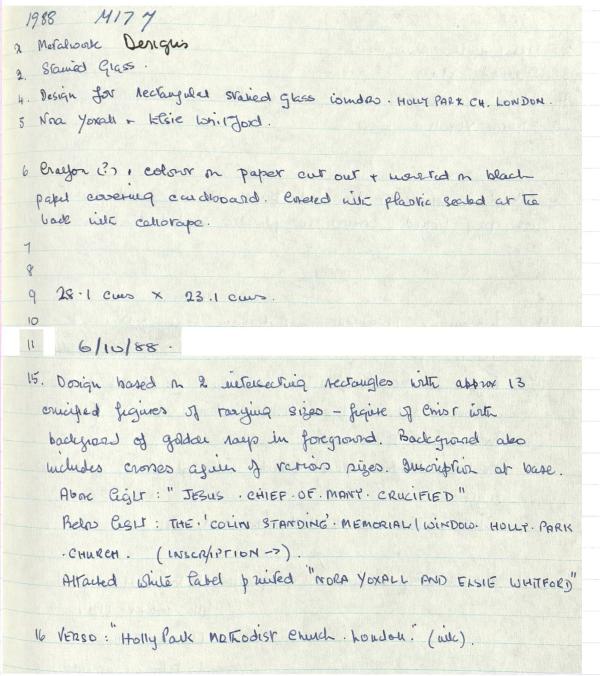 1988 M177
2 Metalwork Designs
2. Stained Glass.
4. Design for rectangular stained glass window. HOLLY PARK CH. LONDON.
5 Nora Yoxall + Elsie Whitford.
6 Crayon (?), colour on paper cut out + mounted on black
paper covering cardboard. Covered with plastic sealed at the
back with cellotape.
7
8
9 28.1 cms × 23.1 cms.
10
11 6/10/88.
15. Design based on 2 intersecting rectangles with approx 13
crucified figures of varying sizes - figure of Christ with
background of golden rays in foreground. Background also
includes crosses again of various sizes. Inscription at base.
Above light: "JESUS · CHIEF · OF · MANY · CRUCIFIED"
Below light: THE · 'COLIN STANDING' · MEMORIAL / WINDOW · HOLLY · PARK
· CHURCH. (INSCRIPTION →).
Attached white label printed "NORA YOXALL AND ELSIE WHITFORD"
16 VERSO: "Holly Park Methodist Church. London." (ink).